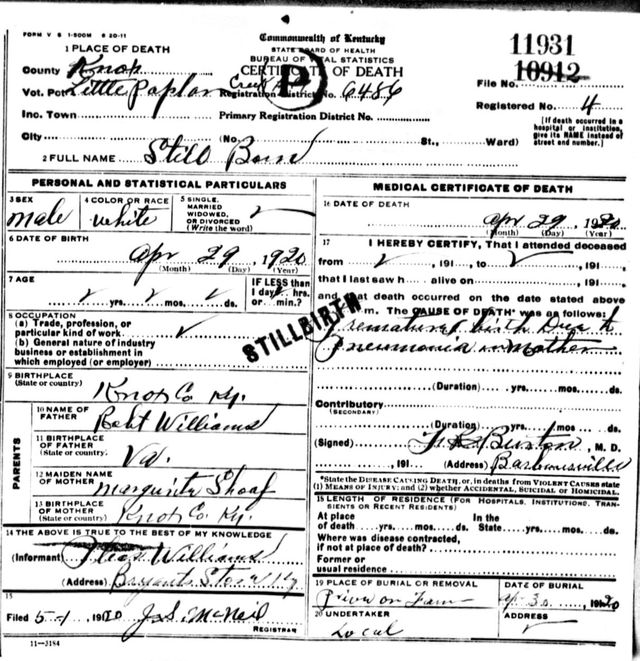 FORM V S 1-500M 6 20-11
Commonwealth of Kentucky
STATE BOARD OF HEALTH
BUREAU OF VITAL STATISTICS
CERTIFICATE OF DEATH
11931
10912
1 PLACE OF DEATH
County Knox
Vot. Pct Little Poplar Creek Registration District No. 6486
File No.
Registered No. 4
Inc. Town
Primary Registration District No.
[If death occurred in a hospital or institution, give its NAME instead of street and number.]
City (No. St., Ward)
2 FULL NAME Still Born
P
PERSONAL AND STATISTICAL PARTICULARS
3 SEX
male
4 COLOR OR RACE
white
5 SINGLE, MARRIED WIDOWED, OR DIVORCED (Write the word)
6 DATE OF BIRTH
Apr 29 1920
(Month) (Day) (Year)
7 AGE
yrs. mos. ds.
IF LESS than 1 day, hrs. or min.?
8 OCCUPATION
(a) Trade, profession, or particular kind of work
(b) General nature of industry business or establishment in which employed (or employer)
STILLBIRTH
9 BIRTHPLACE
(State or country)
Knox Co Ky.
PARENTS
10 NAME OF FATHER
Robt Williams
11 BIRTHPLACE OF FATHER
(State or country)
Va.
12 MAIDEN NAME OF MOTHER
13 BIRTHPLACE OF MOTHER
(State or country)
Knox Co Ky.
14 THE ABOVE IS TRUE TO THE BEST OF MY KNOWLEDGE
(Informant) Williams
(Address) Bryants Store Ky
15
Filed 5-1 1920 J.S. McNeil
REGISTRAR
11-3184
MEDICAL CERTIFICATE OF DEATH
16 DATE OF DEATH
Apr 29 1920
(Month) (Day) (Year)
17 I HEREBY CERTIFY, That I attended deceased
from , 191 , to , 191 ,
that I last saw h alive on , 191 ,
and that death occurred on the date stated above
at m. The CAUSE OF DEATH* was as follows:
Premature birth Due to
Pneumonia in Mother
(Duration) yrs. mos. ds.
Contributory
(SECONDARY)
(Duration) yrs. mos. ds.
(Signed) Burton, M. D.
, 191 (Address) Barbourville
*State the DISEASE CAUSING DEATH, or, in deaths from VIOLENT CAUSES state (1) MEANS OF INJURY; and (2) whether ACCIDENTAL, SUICIDAL or HOMICIDAL.
18 LENGTH OF RESIDENCE (FOR HOSPITALS, INSTITUTIONS, TRANSIENTS OR RECENT RESIDENTS)
At place of death yrs. mos. ds. In the State yrs. mos. ds.
Where was disease contracted, if not at place of death?
Former or usual residence
19 PLACE OF BURIAL OR REMOVAL
DATE OF BURIAL
Apr 30 1920
20 UNDERTAKER
Local
ADDRESS